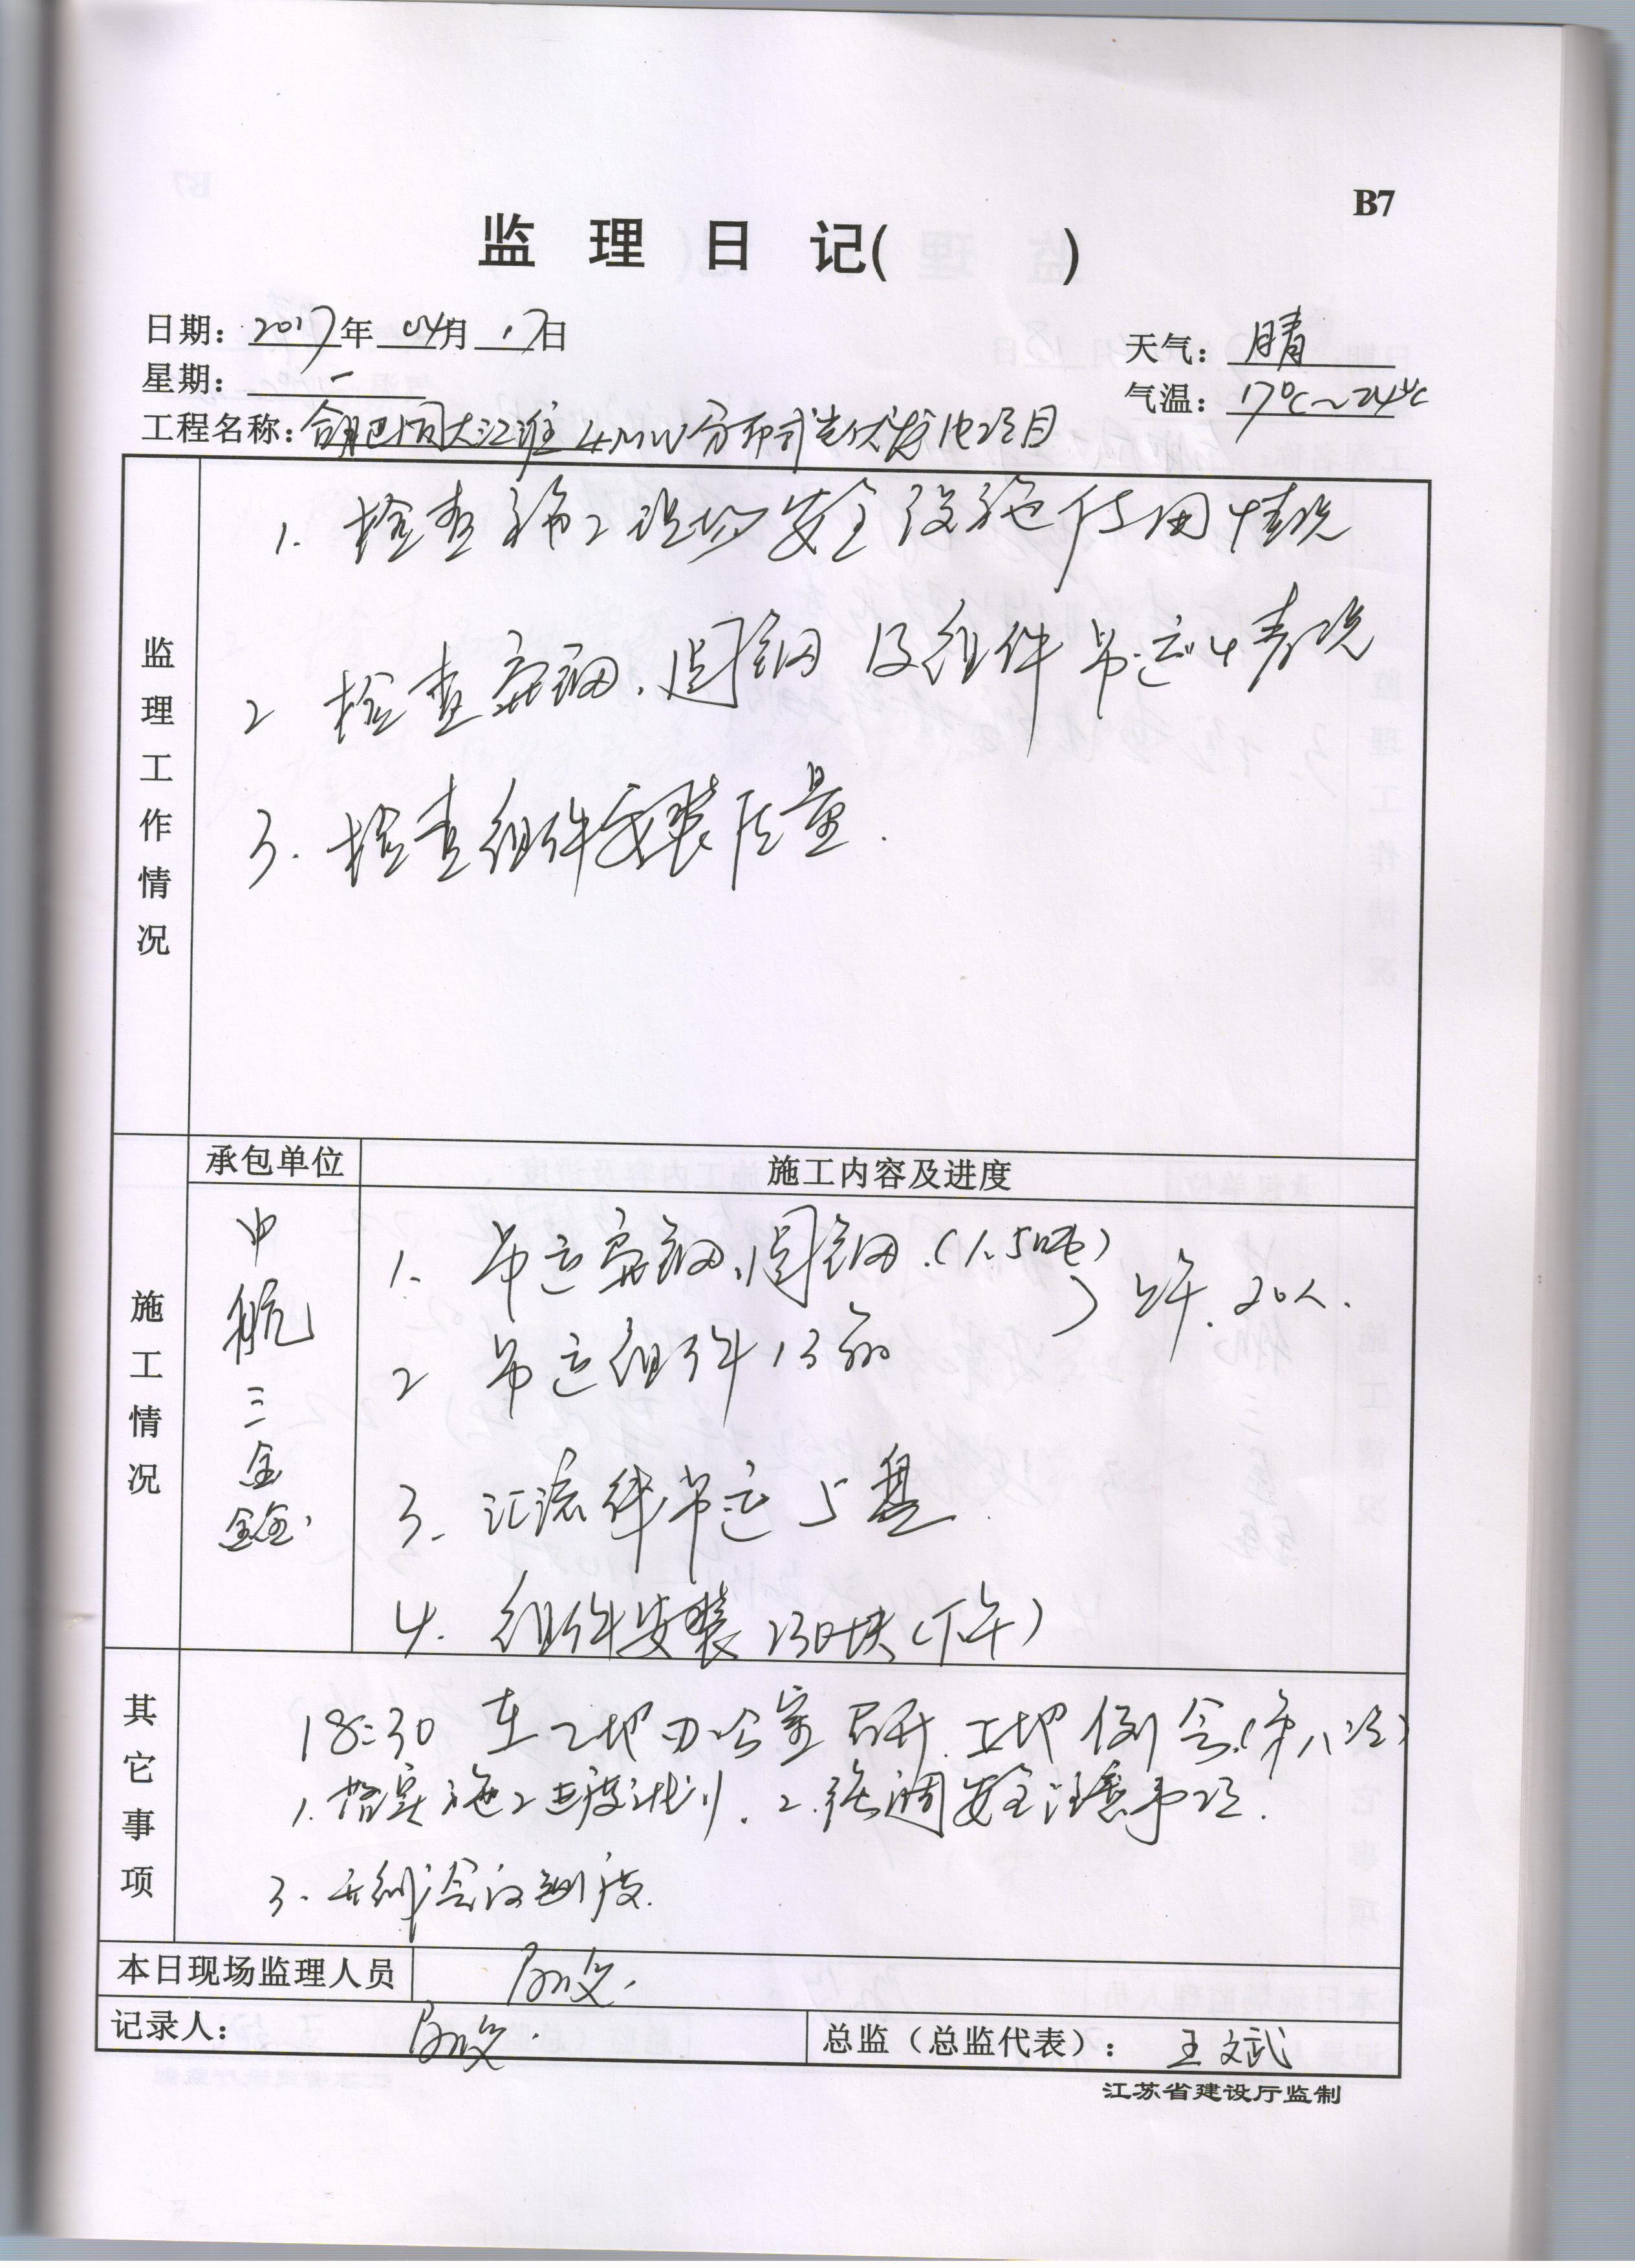 B7
监 理 日 记( )
日期: 2017年 04月 17日
天气: 晴
星期: 一
气温: 17℃~24℃
工程名称: 合肥 大江淮 4MW分布式光伏发电项目
监理工作情况
1. 检查施工现场安全设施使用情况
2 检查 钢、圆钢及组件吊运情况
3. 检查组件安装质量.
承包单位
施工内容及进度
施工情况
中航三鑫
1. 吊运 钢、圆钢.(1.5吨)
上午. 20人.
2 吊运组件13箱
3. 汇流 吊运5盘.
4. 组件安装230块(下午)
其它事项
18:30 在工地办公室召开工地例会.(第八次)
1. 落实施工进度计划. 2. 强调安全注意事项.
3. 会议制度.
本日现场监理人员
记录人:
总监(总监代表): 王文武
江苏省建设厅监制